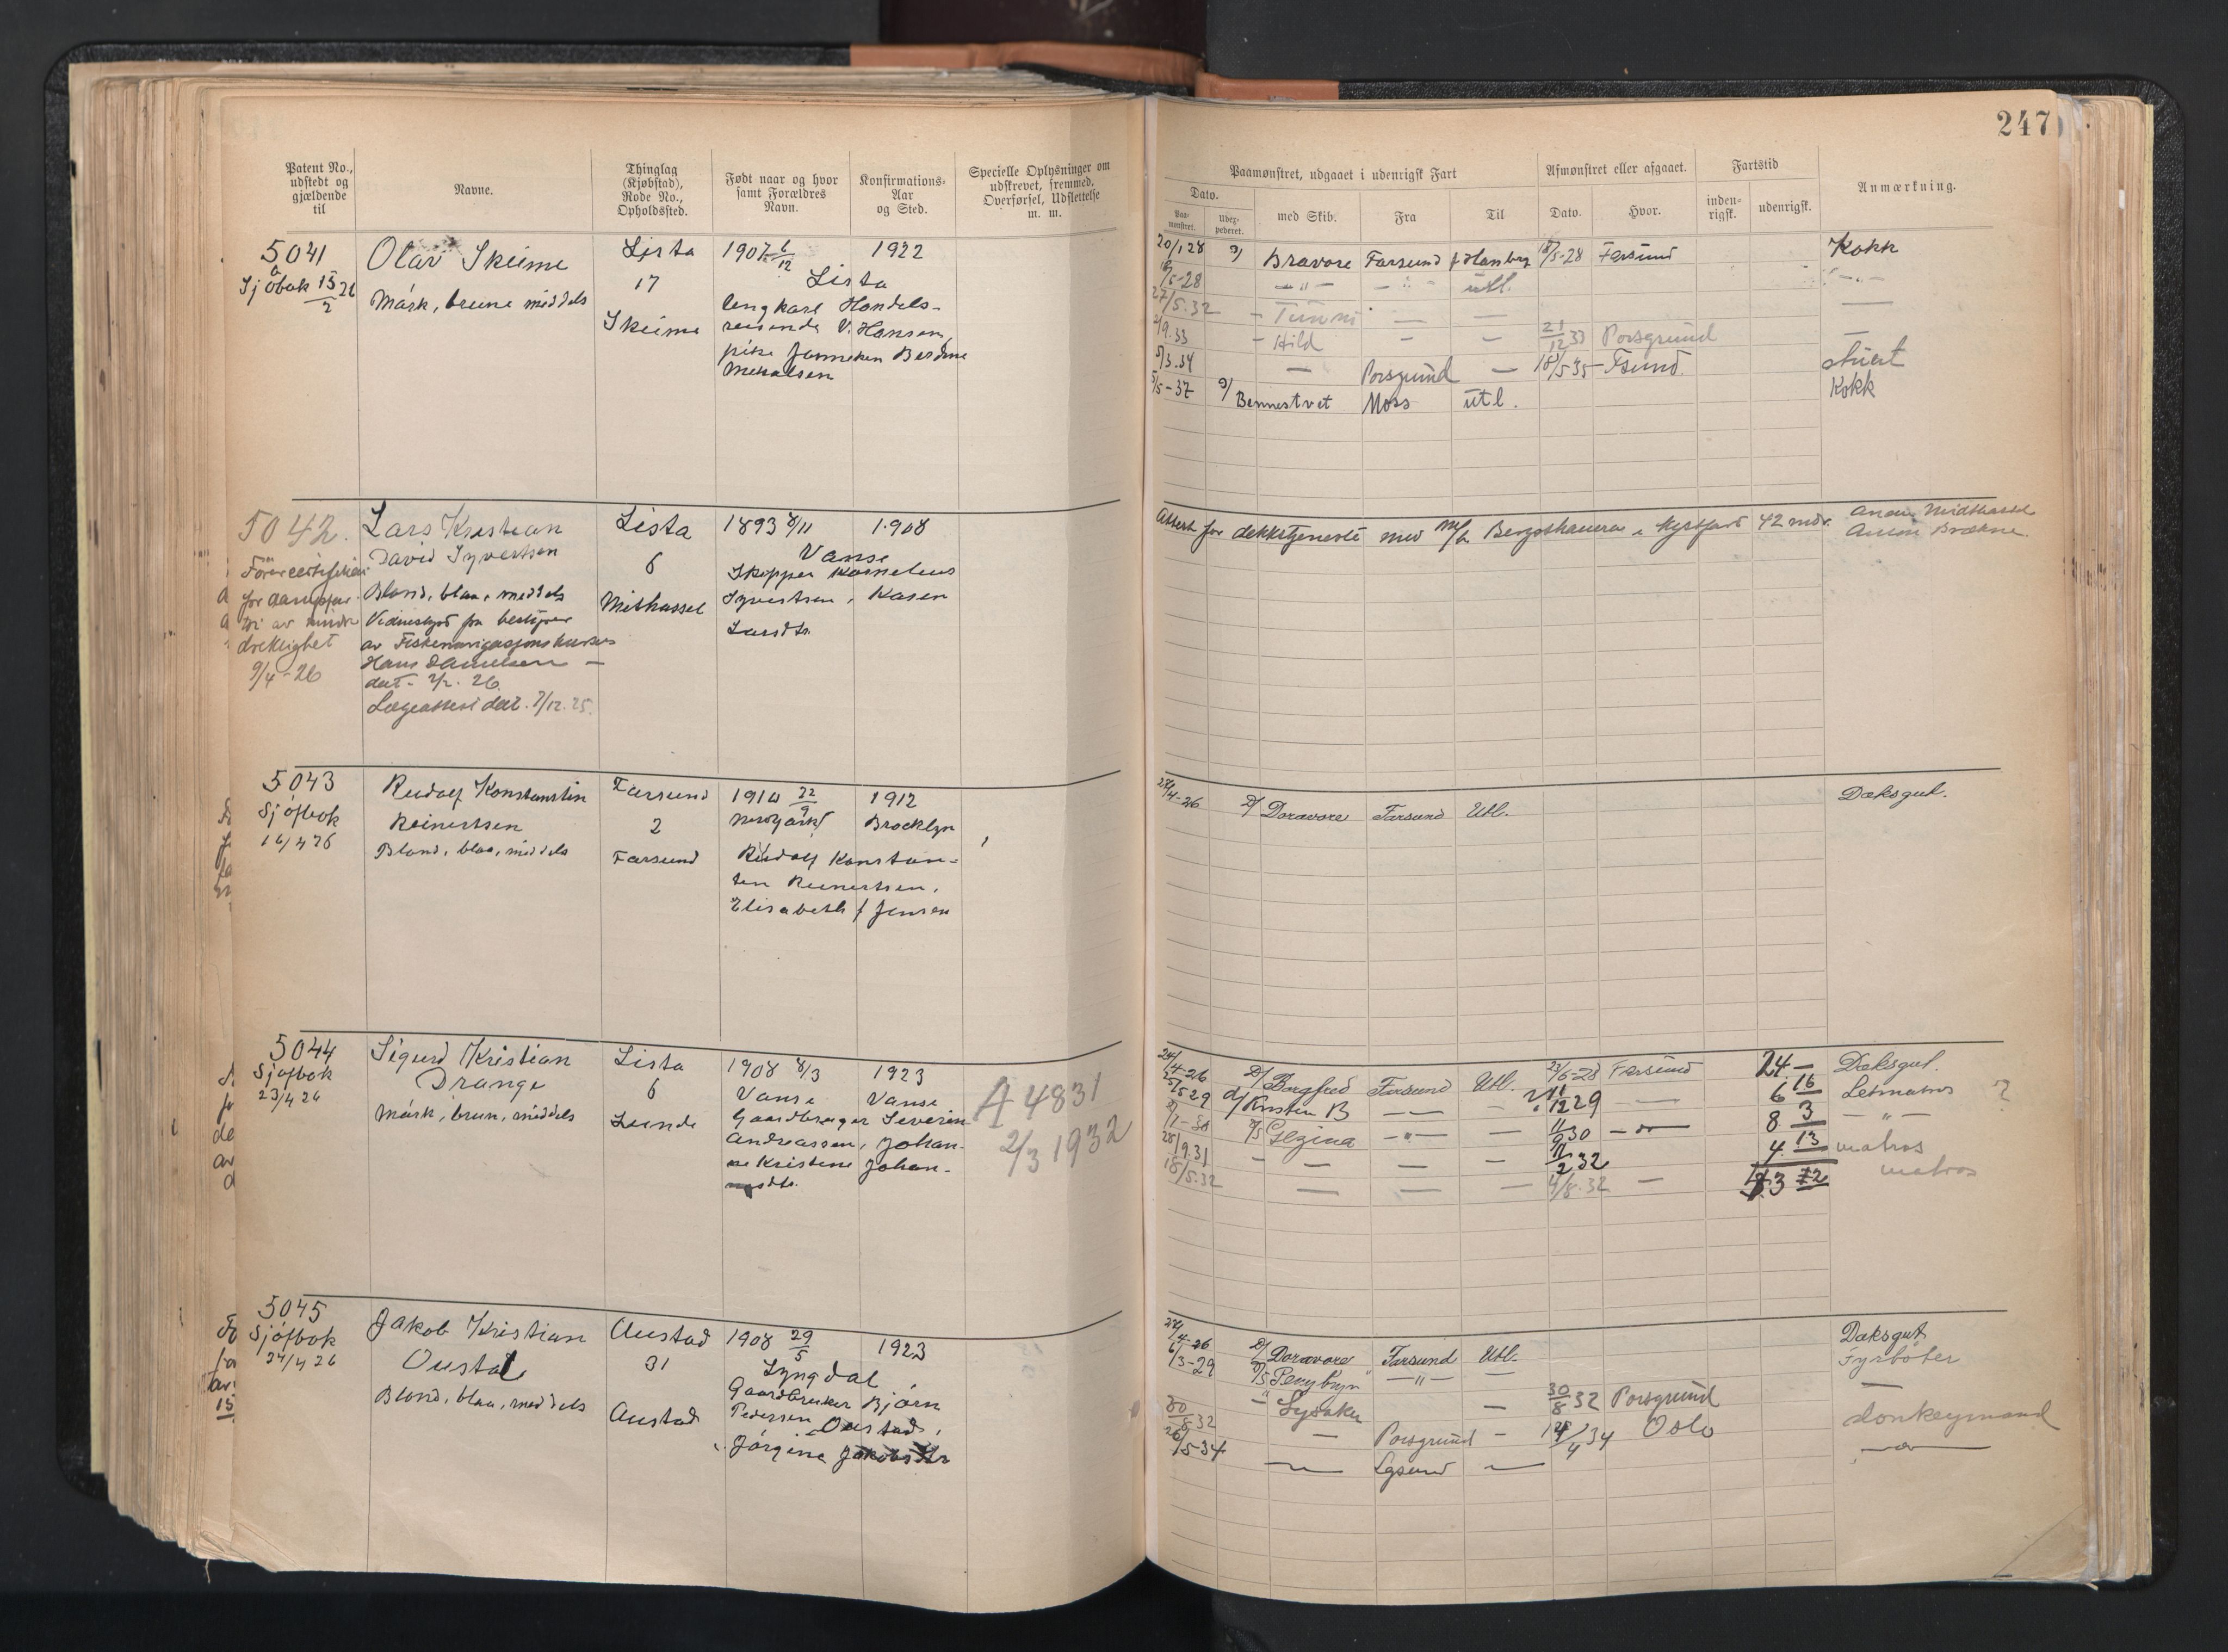 247
Patent No., udstedt og gjældende til
Navne.
Thinglag (Kjøbstad), Rode No., Opholdssted.
Født naar og hvor samt Forældres Navn.
Konfirmations-Aar og Sted.
Specielle Oplysninger om udskrevet, fremmed, Overførsel, Udslettelse m. m.
Paamønstret, udgaaet i udenrigsk Fart
Dato.
Paa-mønstret.
Udex-pederet.
med Skib.
Fra
Til
Afmønstret eller afgaaet.
Dato.
Hvor.
Fartstid
inden-rigsk.
udenrigsk.
Anmærkning.
5041
Sjøbok 15/2 26
Olav Skeime
Mørk, brune middels
Lista
17
Skeime
1907 6/12
1922
Lista
Ungkarl Handels-
reisende V. Hansen,
pike Janneken Berdine
Mekalsen
20/1 28 Bravore Farsund Hamburg 18/5-28 Farsund Kokk
18/5-28 — „ — utl.
27/5.32
9.33 — Hild — — 21/12 33 Porsgrund
5/3.34 — Porsgrund — 18/5 35 — Fsund. stuert
5/5-37 Bennestvet Moss utl. Kokk
5042.
for
9/4-26
Lars Kristian
David Syvertsen
Blond, blaa, middels
av Fiskernavigasjonskursus
Hans Danielsen —
dat. 26.
Lægeattest dat. 7/12.25.
Lista
6
Mithassel
1893 8/11
1908
Vanse
Skipper Kornelius
Syvertsen, Karen
Larsdtr
Attest for dekkstjeneste med Bergshavern i Kystfart 42 mdr.
5043
Sjøfbok
16/4 26
Rudolf Konstantin
Reinertsen
Blond, blaa, middels
Farsund
2
Farsund
22/9
1912
New York
Brooklyn
Rudolf Konstan-
tin Reinertsen,
Elisabeth f Jensen
24/4-26 D/ Doravore Farsund Utl. Dæksgut.
5044
Sjøfbok
23/4 26
Sigurd Kristian
Drange
Mørk, brun, middels
Lista
6
Lunde
1908 8/3
1923
Vanse
Vanse
Gaardbruger Severin
Andreassen, Johan-
ne Kristine Johan-
nesdtr.
A 4831
2/3 1932
24/4-26 D/ Borgfred Farsund Utl. 23/6-28 Farsund 24 — Dæksgut.
5.29 d/ Kirsten B — — 11/12 29 — 6 16 Letmatros ?
Elgina — „ — — 11/9 30 — „ — 8 3 — „ —
28/9.31 — — — — 11/2 32 4 13 matros
18/5.32 — — — 4/8.32 — matros
5045
Sjøfbok
24/4 26
Jakob Kristian
Oustad
Blond, blaa, middels
Austad
31
Austad
1908 29/5
1923
Lyngdal
Gaardbruker Bjørn
Pedersen Oustad,
Jørgine Jakobsdtr
24/4-26 D/ Doravore Farsund Utl. Dæksgut
6/3-29 — „ — — Fyrbøter
— Lysaker — 30/8 32 Porsgrund —
30/8 32 — Porsgrund — 34 Oslo donkeymand
26/5-34 — — — „ —